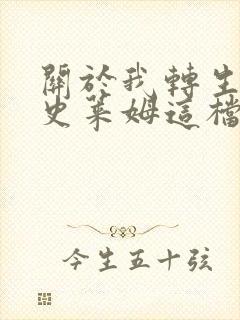 關於我轉生
史萊姆這檔
今生五十弦